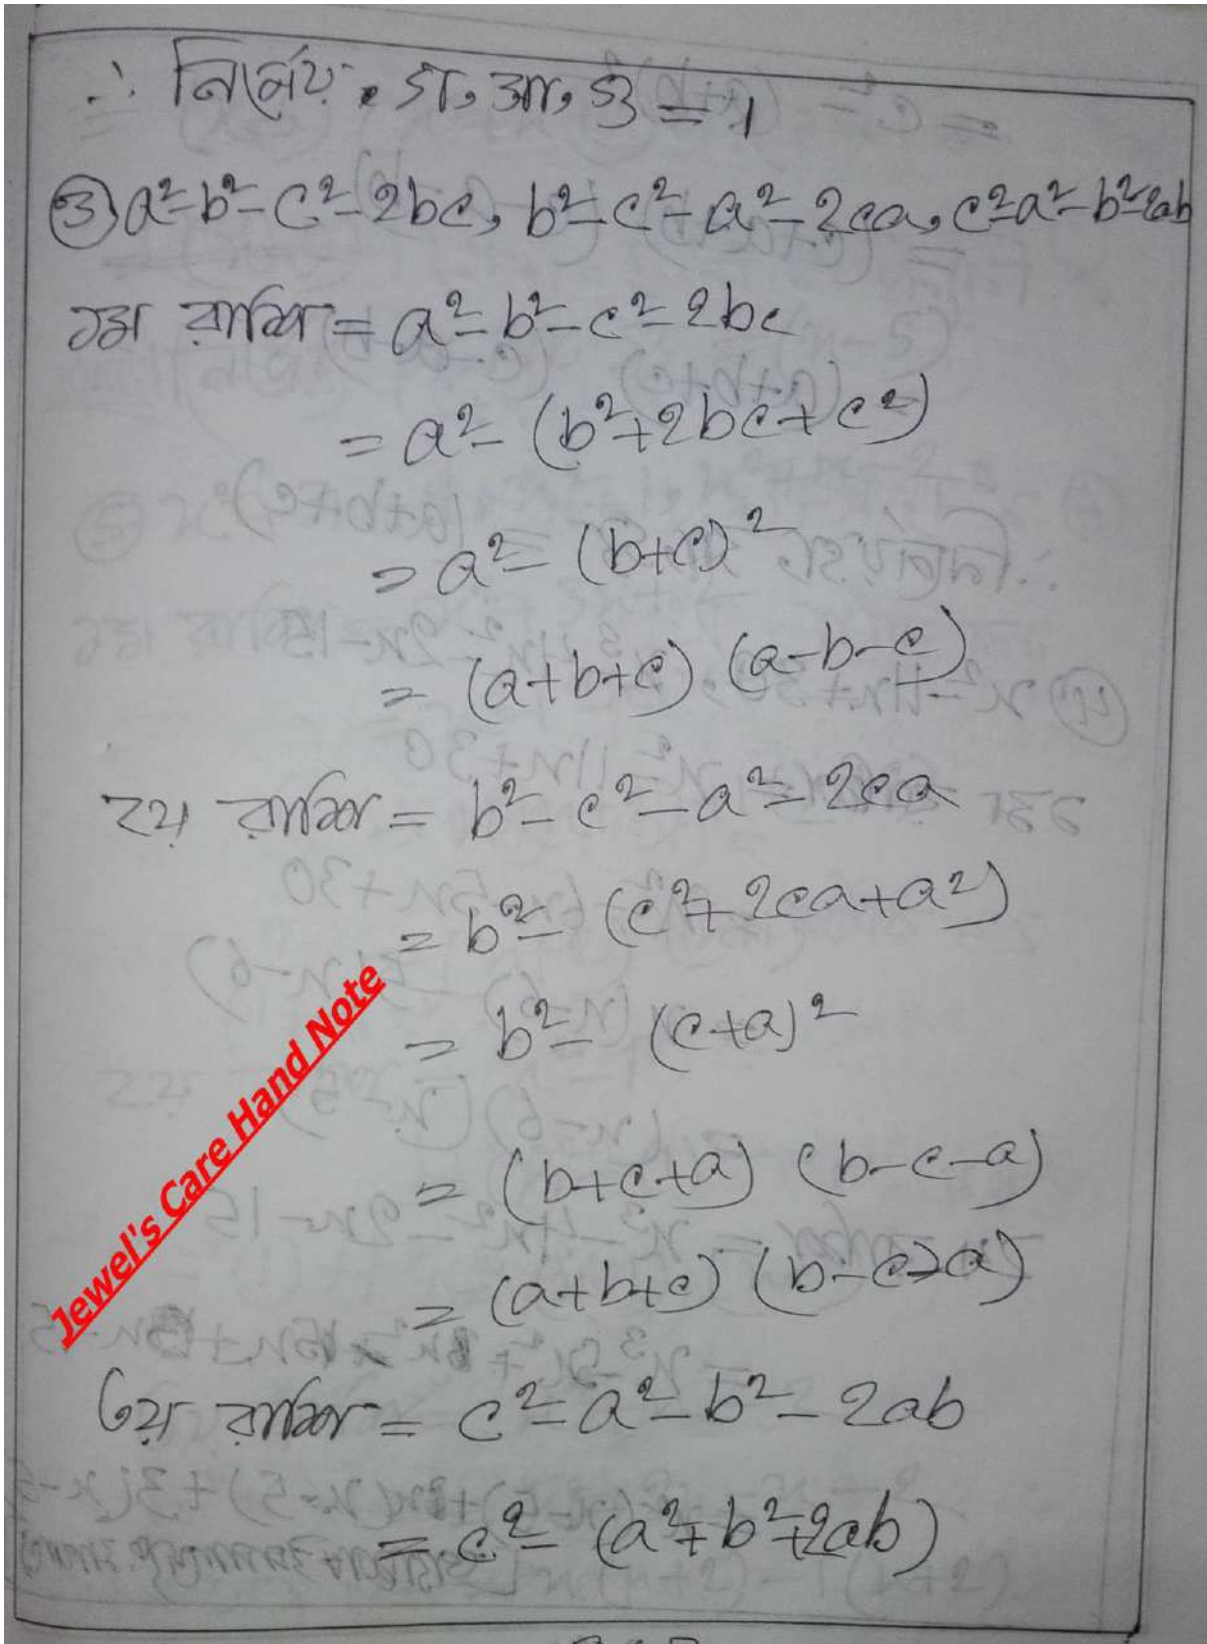 ∴ নির্ণেয়. গ, সা, গু = 1
৩) a² - b² - c² - 2bc, b² - c² - a² - 2ca, c² - a² - b² - 2ab
১ম রাশি = a² - b² - c² - 2bc
= a² - (b² + 2bc + c²)
= a² - (b+c)²
= (a+b+c) (a-b-c)
২য় রাশি = b² - c² - a² - 2ca
= b² - (c² + 2ca + a²)
= b² - (c+a)²
= (b+c+a) (b-c-a)
= (a+b+c) (b-c-a)
৩য় রাশি = c² - a² - b² - 2ab
= c² - (a² + b² + 2ab)
Jewel's Care Hand Note